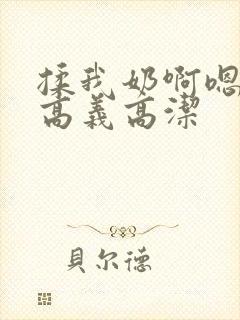 揉我奶啊嗯
高義高潔
貝尔德